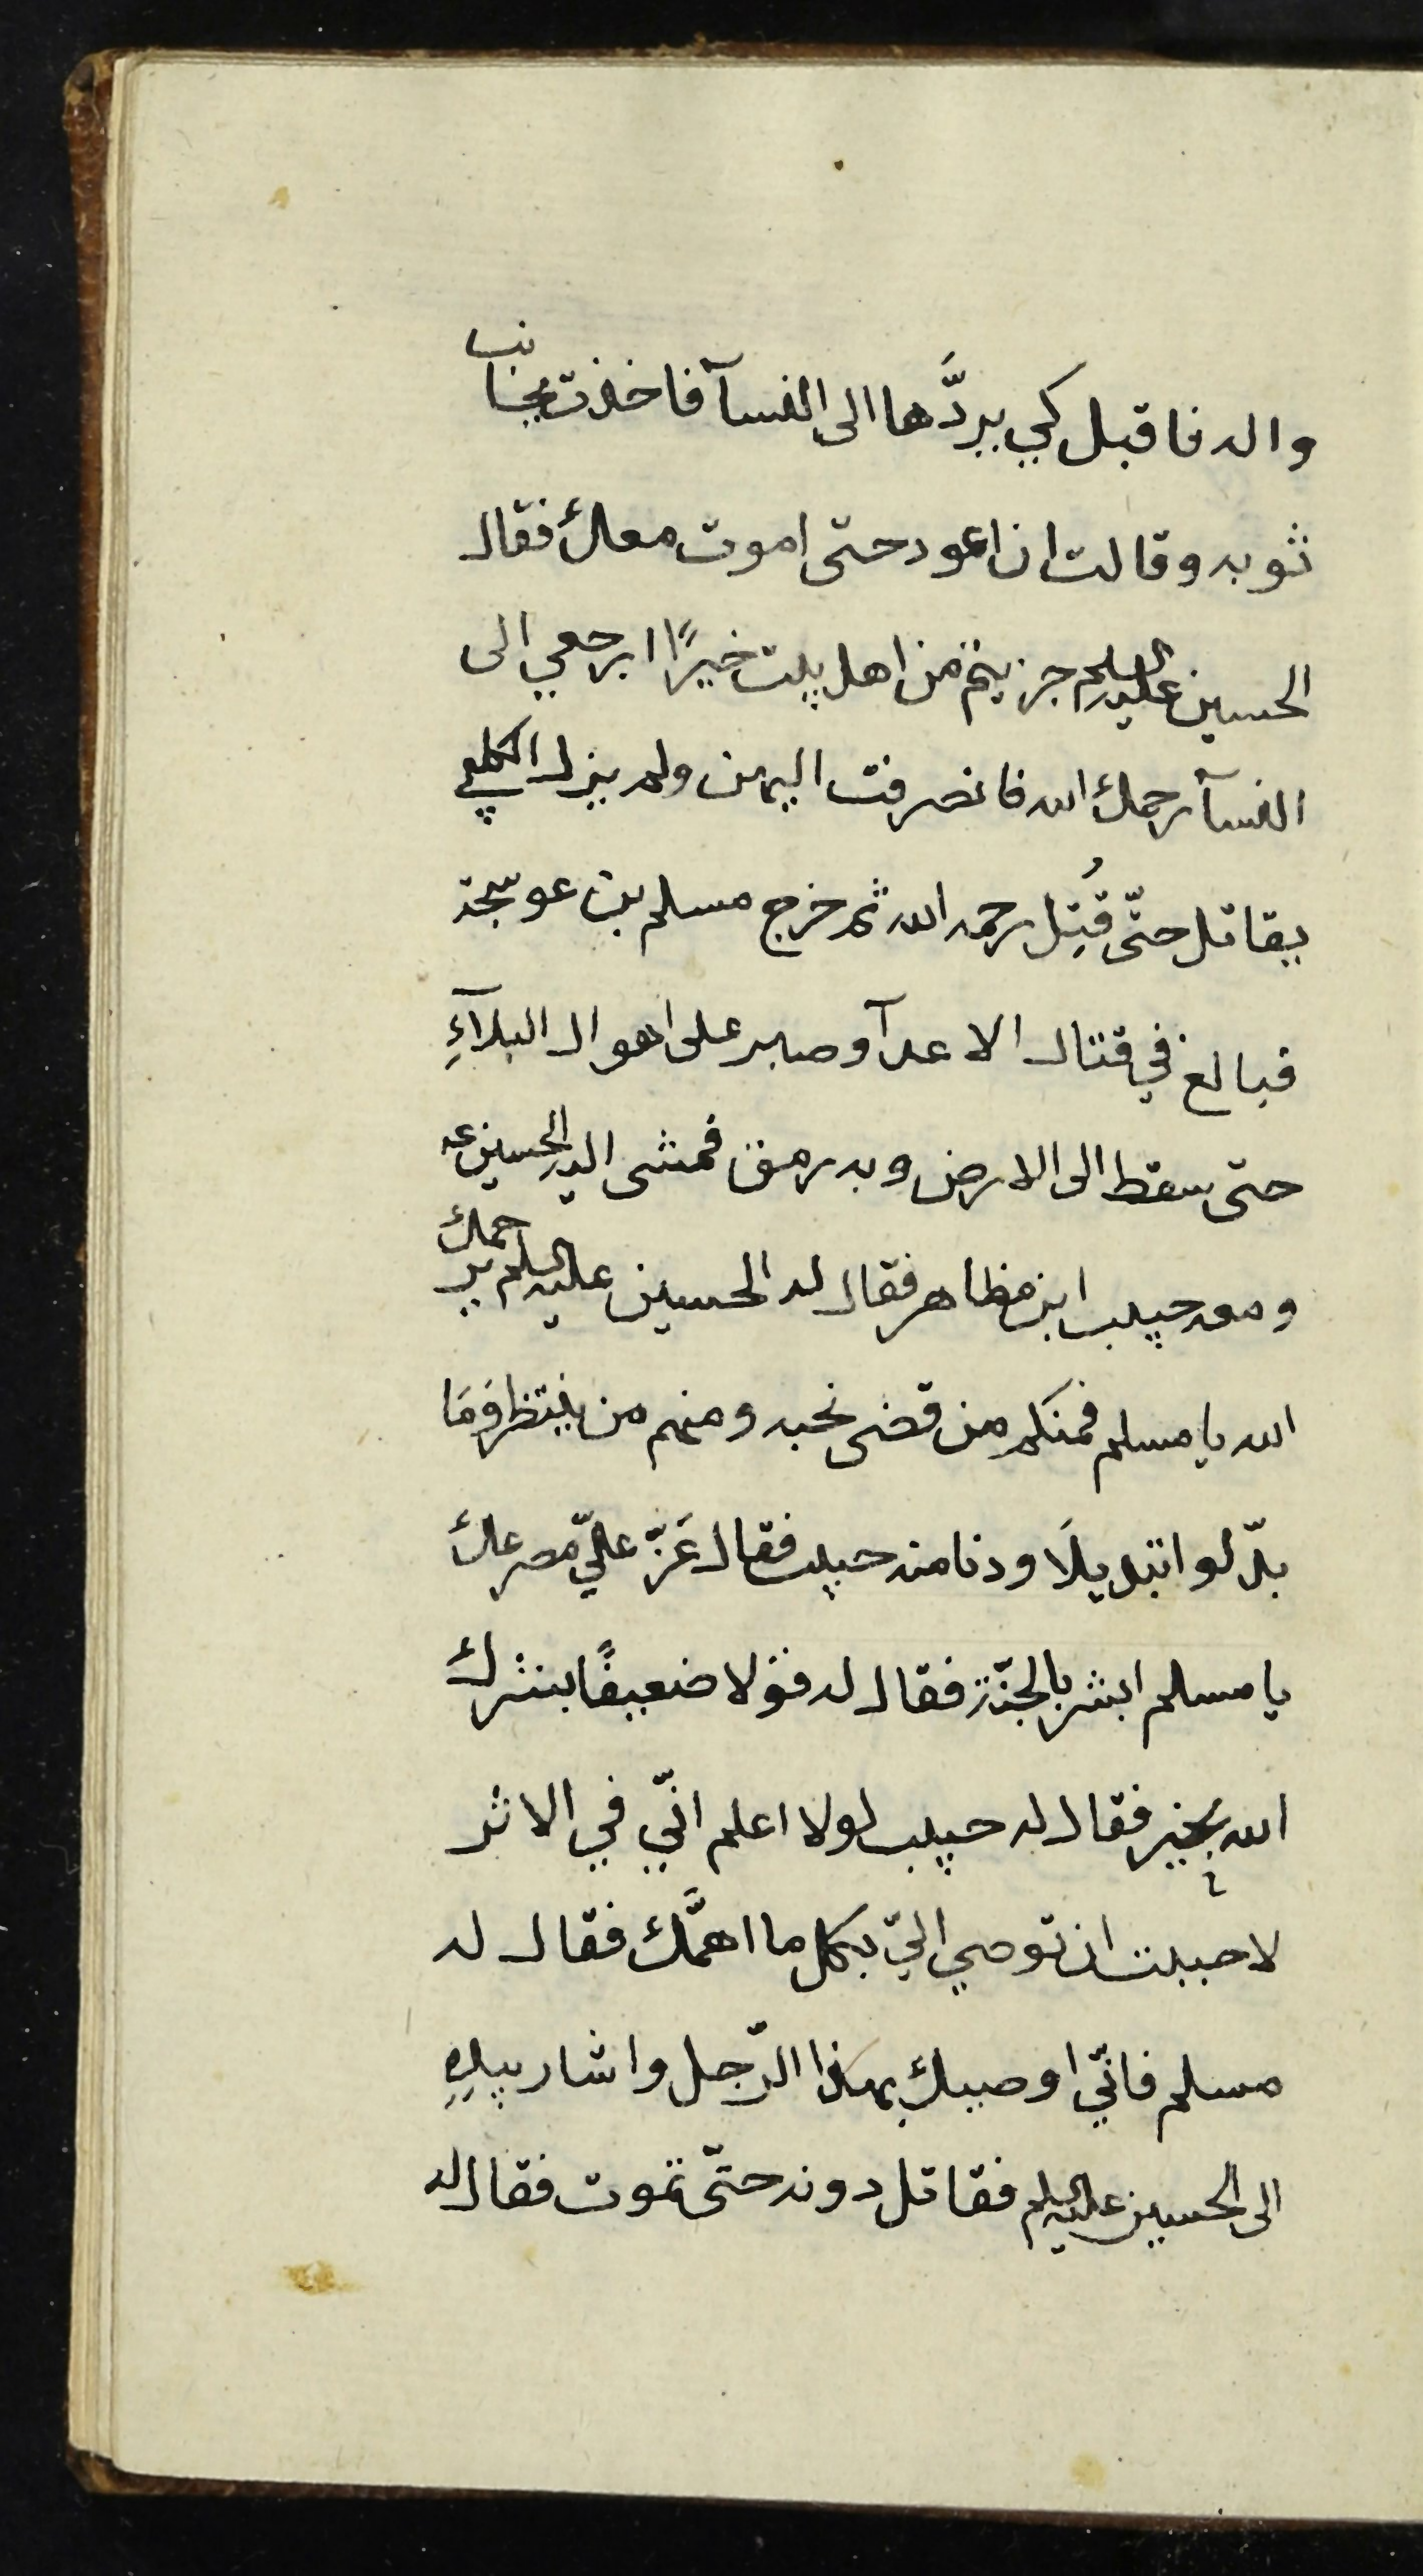 واله فاقبل كي يردَّها الى النسآ فاخذت بجانب
ثوبه وقالت ان اعود حتى اموت معك فقال
الحسين عليه السلم جزيتم من اهل بيت خيرًا ارجعي الى
النسآ رحمك الله فانصرفت اليهن ولم يزل الكلبي
يقاتل حتّى قُتِل رحمه الله ثم خرج مسلم بن عوسجة
فبالغ في قتال الاعدآ وصبر على اهوال البلآءِ
حتى سقط الى الارض وبه رمق فمشى اليه الحسين عه
ومعه حبيب ابن مظاهر فقال له الحسين عليه السلم يرحمك
الله يا مسلم فمنكم من قضى نحبه ومنهم من ينتظر وَمَا
بدّلوا تبديلًا ودنا منه حبيب فقال عَزّ عليّ مصرعك
يا مسلم ابشر بالجنّة فقال له قولا ضعيفًا بشرك
الله بخير فقال له حبيب لولا اعلم انّي في الاثر
لاحببت ان توصي اليّ بكل ما اهمَّك فقال له
مسلم فانّي اوصيك بهذا الرّجل واشار بيدِهِ
الى الحسين عليه السلم فقاتل دونه حتّى تموت فقال له